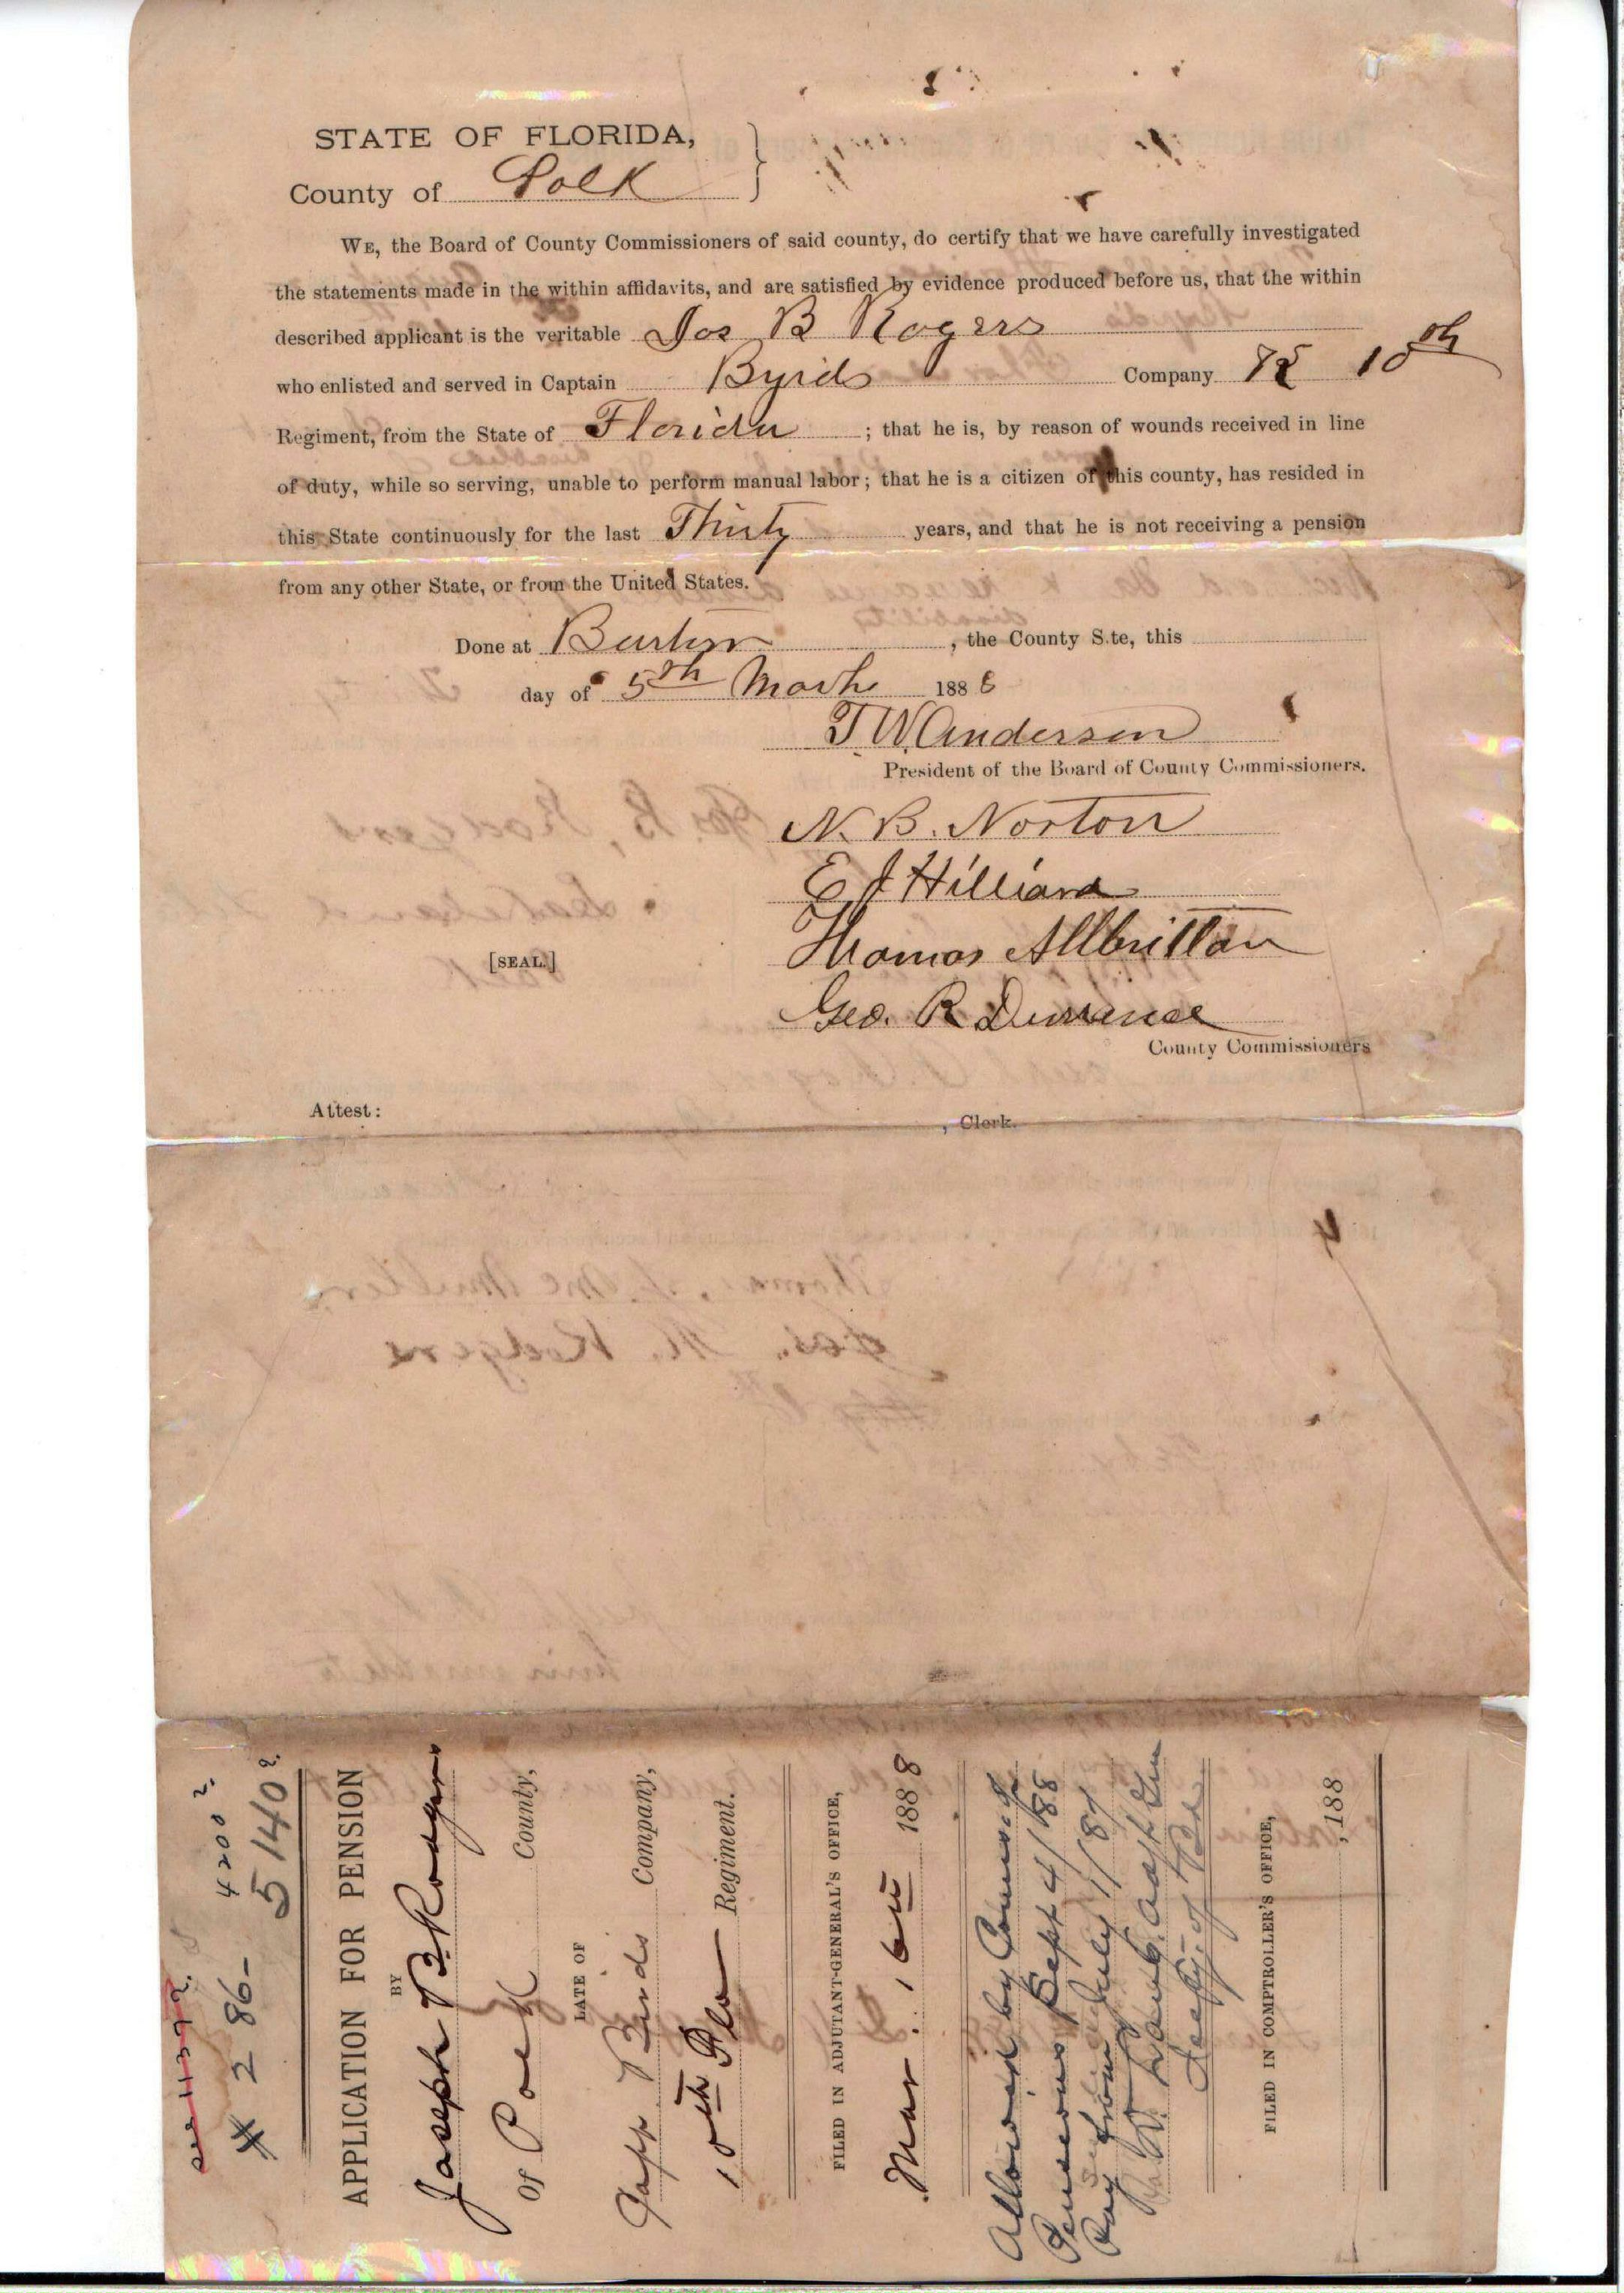 STATE OF FLORIDA,
County of Polk
WE, the Board of County Commissioners of said county, do certify that we have carefully investigated
the statements made in the within affidavits, and are satisfied by evidence produced before us, that the within
described applicant is the veritable Jos B Rogers
who enlisted and served in Captain Byrds Company 10th
Regiment, from the State of Florida ; that he is, by reason of wounds received in line
of duty, while so serving, unable to perform manual labor; that he is a citizen of this county, has resided in
this State continuously for the last Thirty years, and that he is not receiving a pension
from any other State, or from the United States.
Done at Bartow , the County S.te, this
day of 5th March 1888
T. W. Anderson
President of the Board of County Commissioners.
N. B. Norton
E J Hilliard
Thomas Albritton
[SEAL.]
Geo. R Durrance
County Commissioners
Attest: , Clerk.
4200
# 286- 5140
APPLICATION FOR PENSION
BY
Joseph B. Rodgers
Of Polk County,
LATE OF
Capp Birds Company,
10th Fla Regiment.
FILED IN ADJUTANT-GENERAL'S OFFICE,
Mar. 16th 1888
Allowed by Comrs. of
Pensions Sept 4/88
Pay from July 1/87
D. Lang. Adjt Gen
Secty. of Bd.
FILED IN COMPTROLLER'S OFFICE,
, 188